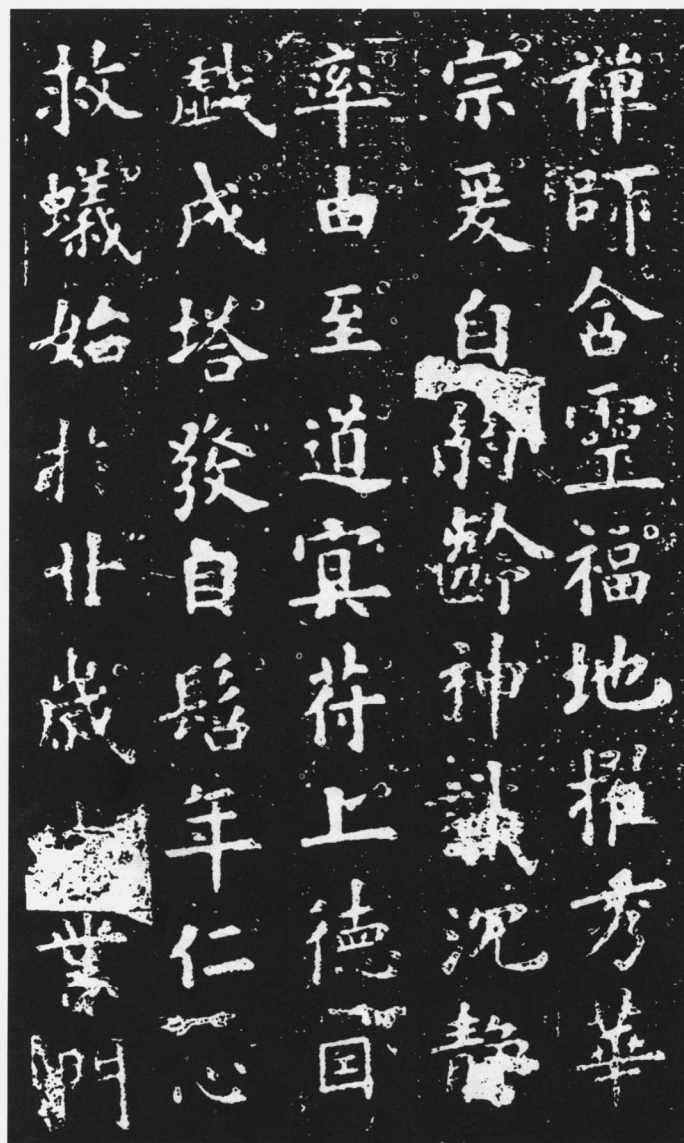 禅師含靈福地擢秀華
宗爰自弱齡神識沉静
率由至道冥符上德因
戲成塔發自髫年仁心
救蟻始於廿歲業門